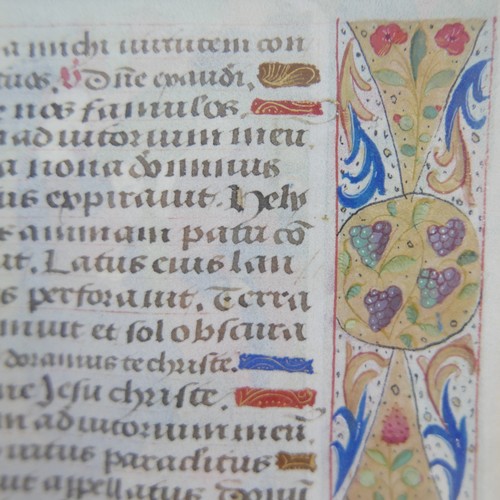 a michi virtutem con
tuos. Dñe exaudi,
e nos famulos
adiutorium meu
a nona dominus
us expirauit. Hely
s animam patri cõ
ut. Latus eius lan
s perforauit. Terra
muit et sol obscura
doramus te christe.
ne Jesu christe.
m adiutorium meũ
uitus paraclitus
ut appellatus donũ